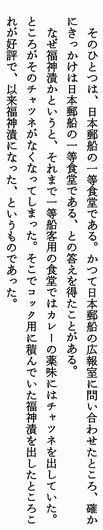 そのひとつは、日本郵船の一等食堂である。かつて日本郵船の広報室に問い合わせたところ、確か
にきっかけは日本郵船の一等食堂である、との答えを得たことがある。
なぜ福神漬かというと、それまで一等船客用の食堂ではカレーの薬味にはチャツネを出していた。
ところがそのチャツネがなくなってしまった。そこでコック用に積んでいた福神漬を出したところこ
れが好評で、以来福神漬になった、というものであった。